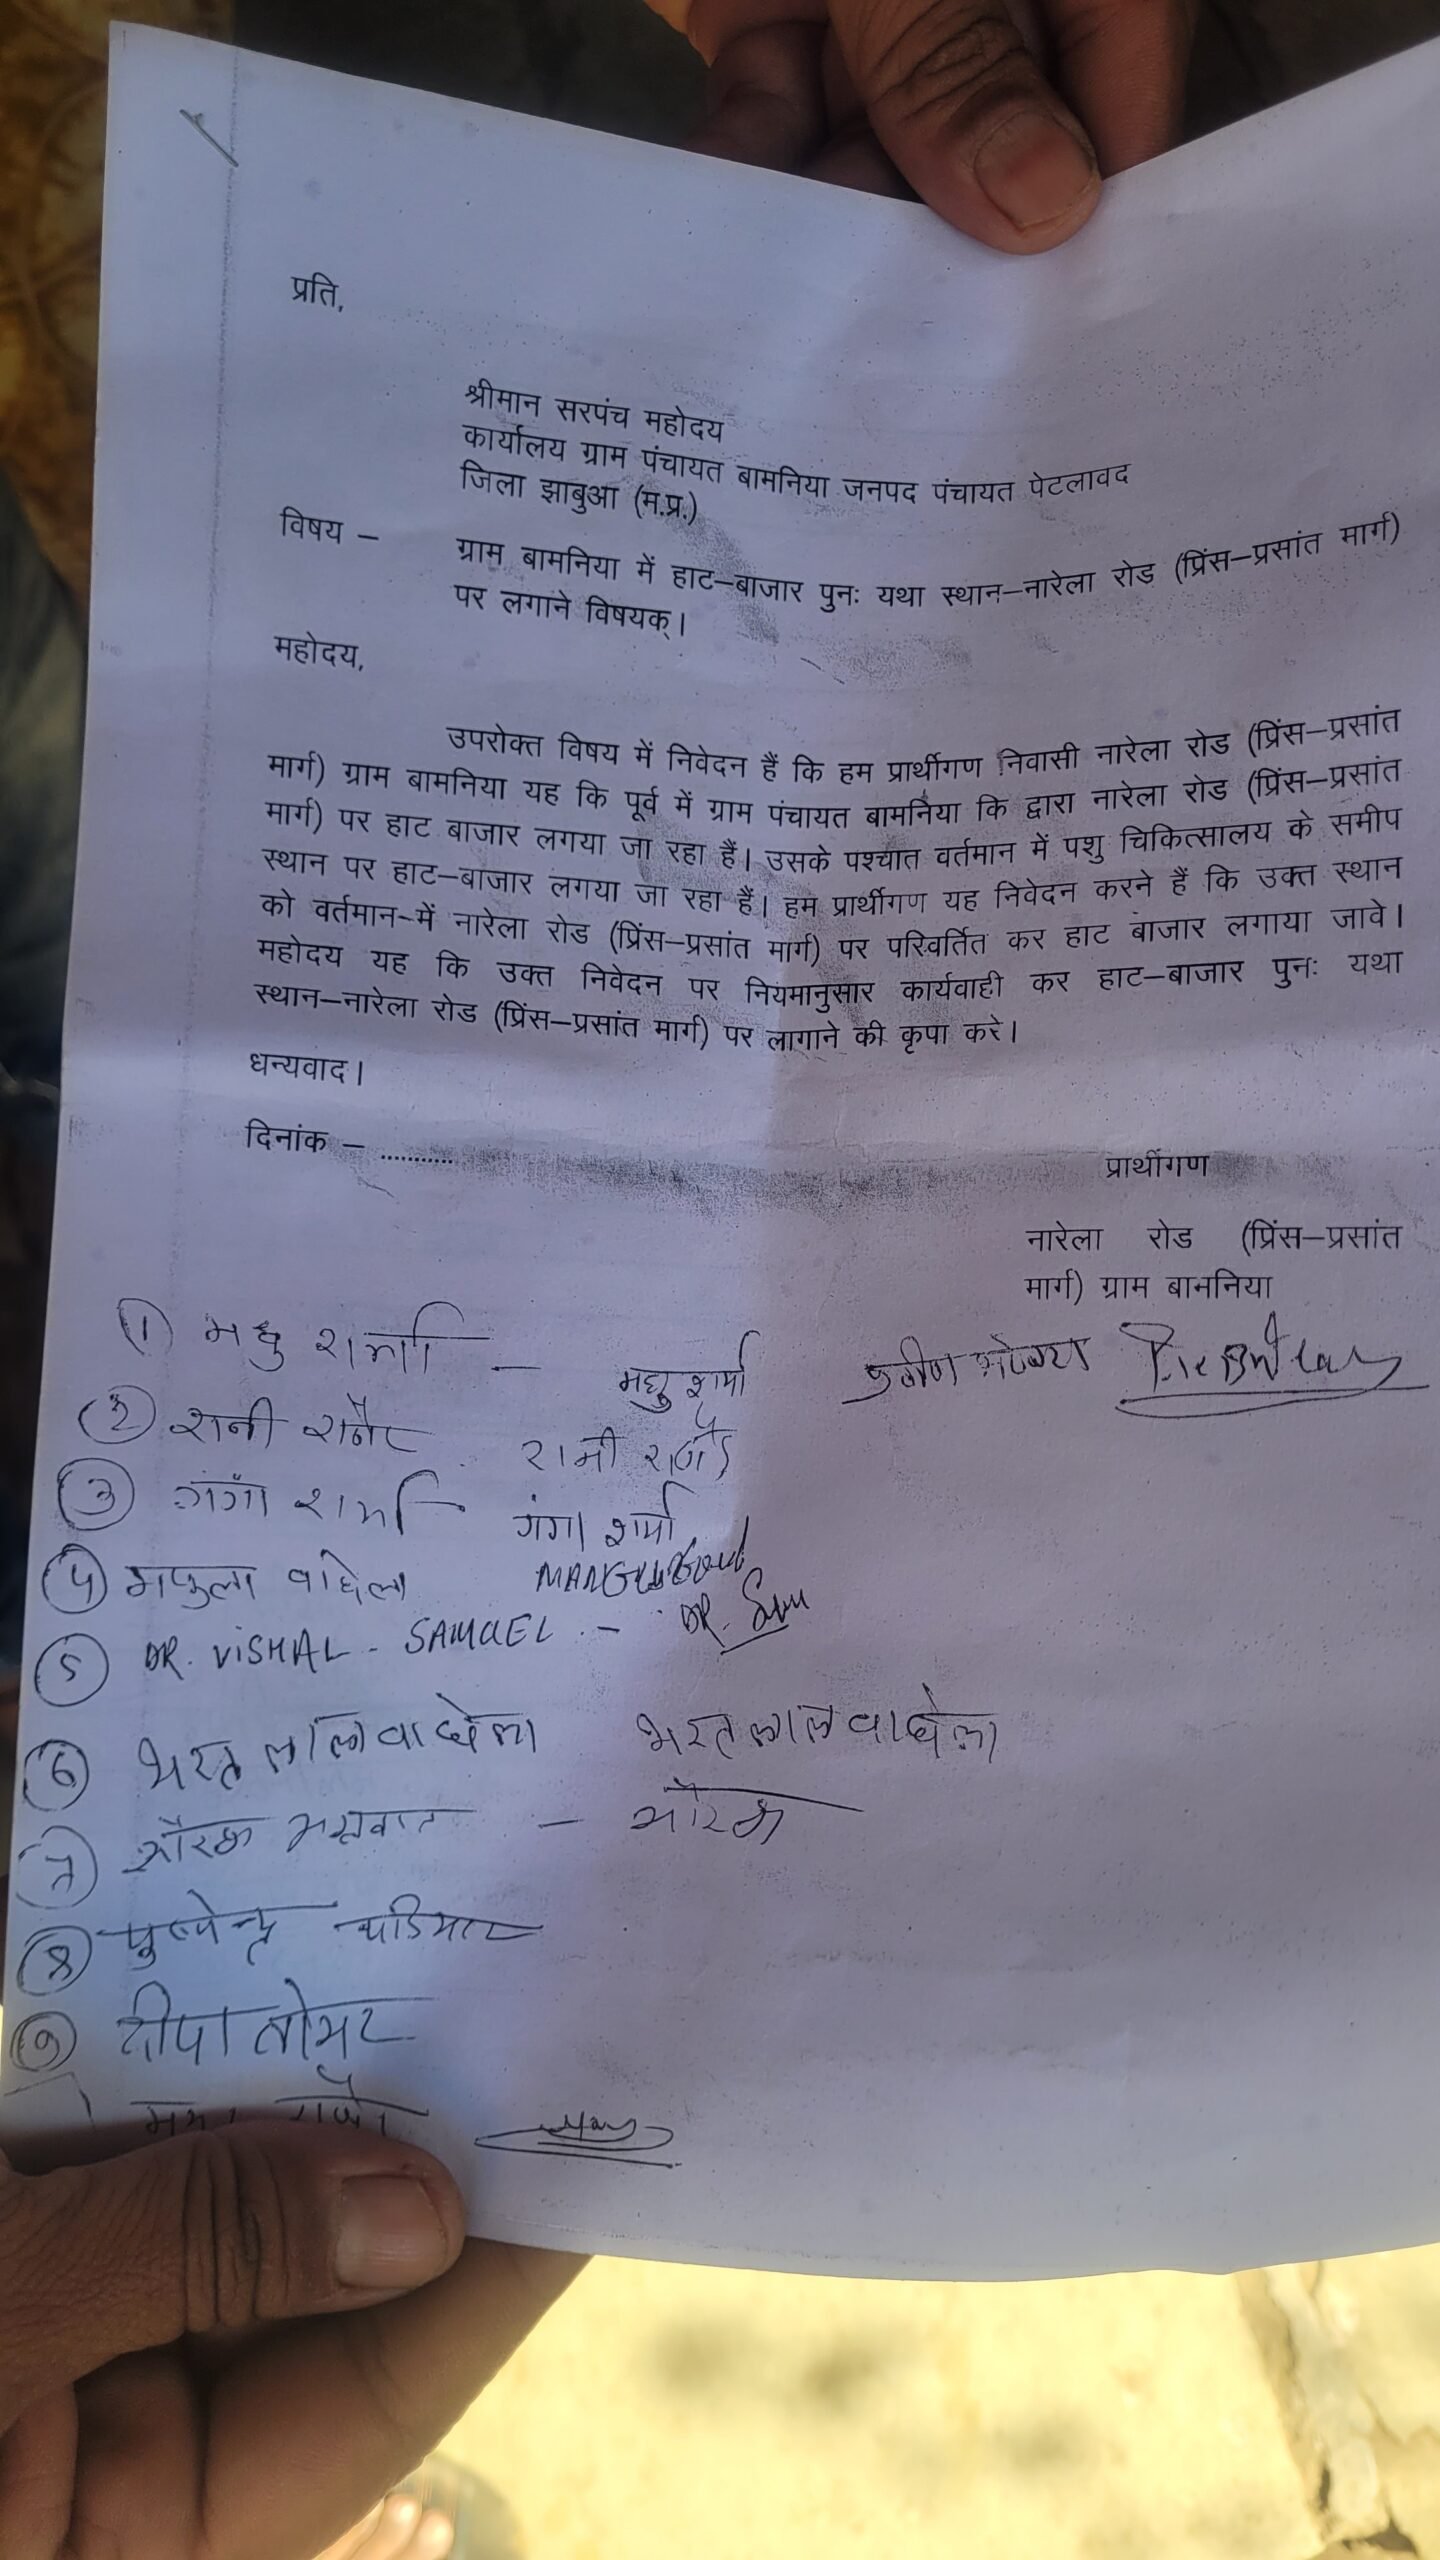 प्रति,
श्रीमान सरपंच महोदय
कार्यालय ग्राम पंचायत बामनिया जनपद पंचायत पेटलावद
जिला झाबुआ (म.प्र.)
विषय – ग्राम बामनिया में हाट–बाजार पुनः यथा स्थान–नारेला रोड (प्रिंस–प्रसांत मार्ग)
पर लगाने विषयक्।
महोदय,
उपरोक्त विषय में निवेदन हैं कि हम प्रार्थीगण निवासी नारेला रोड (प्रिंस–प्रसांत
मार्ग) ग्राम बामनिया यह कि पूर्व में ग्राम पंचायत बामनिया कि द्वारा नारेला रोड (प्रिंस–प्रसांत
मार्ग) पर हाट बाजार लगया जा रहा हैं। उसके पश्चात वर्तमान में पशु चिकित्सालय के समीप
स्थान पर हाट–बाजार लगया जा रहा हैं। हम प्रार्थीगण यह निवेदन करने हैं कि उक्त स्थान
को वर्तमान-में नारेला रोड (प्रिंस–प्रसांत मार्ग) पर परिवर्तित कर हाट बाजार लगाया जावे।
महोदय यह कि उक्त निवेदन पर नियमानुसार कार्यवाही कर हाट–बाजार पुनः यथा
स्थान–नारेला रोड (प्रिंस–प्रसांत मार्ग) पर लागाने की कृपा करे।
धन्यवाद।
दिनांक – ...........
प्रार्थीगण
नारेला रोड (प्रिंस–प्रसांत
मार्ग) ग्राम बामनिया
① मधु शर्मा – मधु शर्मा
②
③ गंगा शर्मा – गंगा शर्मा
④ वाघेला
⑤ DR. VISHAL - SAMUEL - DR.
⑥ भरतलाल वाघेला भरतलाल वाघेला
⑦
⑧ पुष्पेन्द्र
⑨ दीपा तोमर